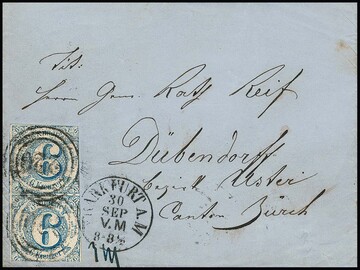 Tit:
Herrn Gem. Rath Reif
Dübendorff
Bezirk Uster
Canton Zürich
6
6
FRANKFURT A.M.
30
SEP
V.M
8-8½